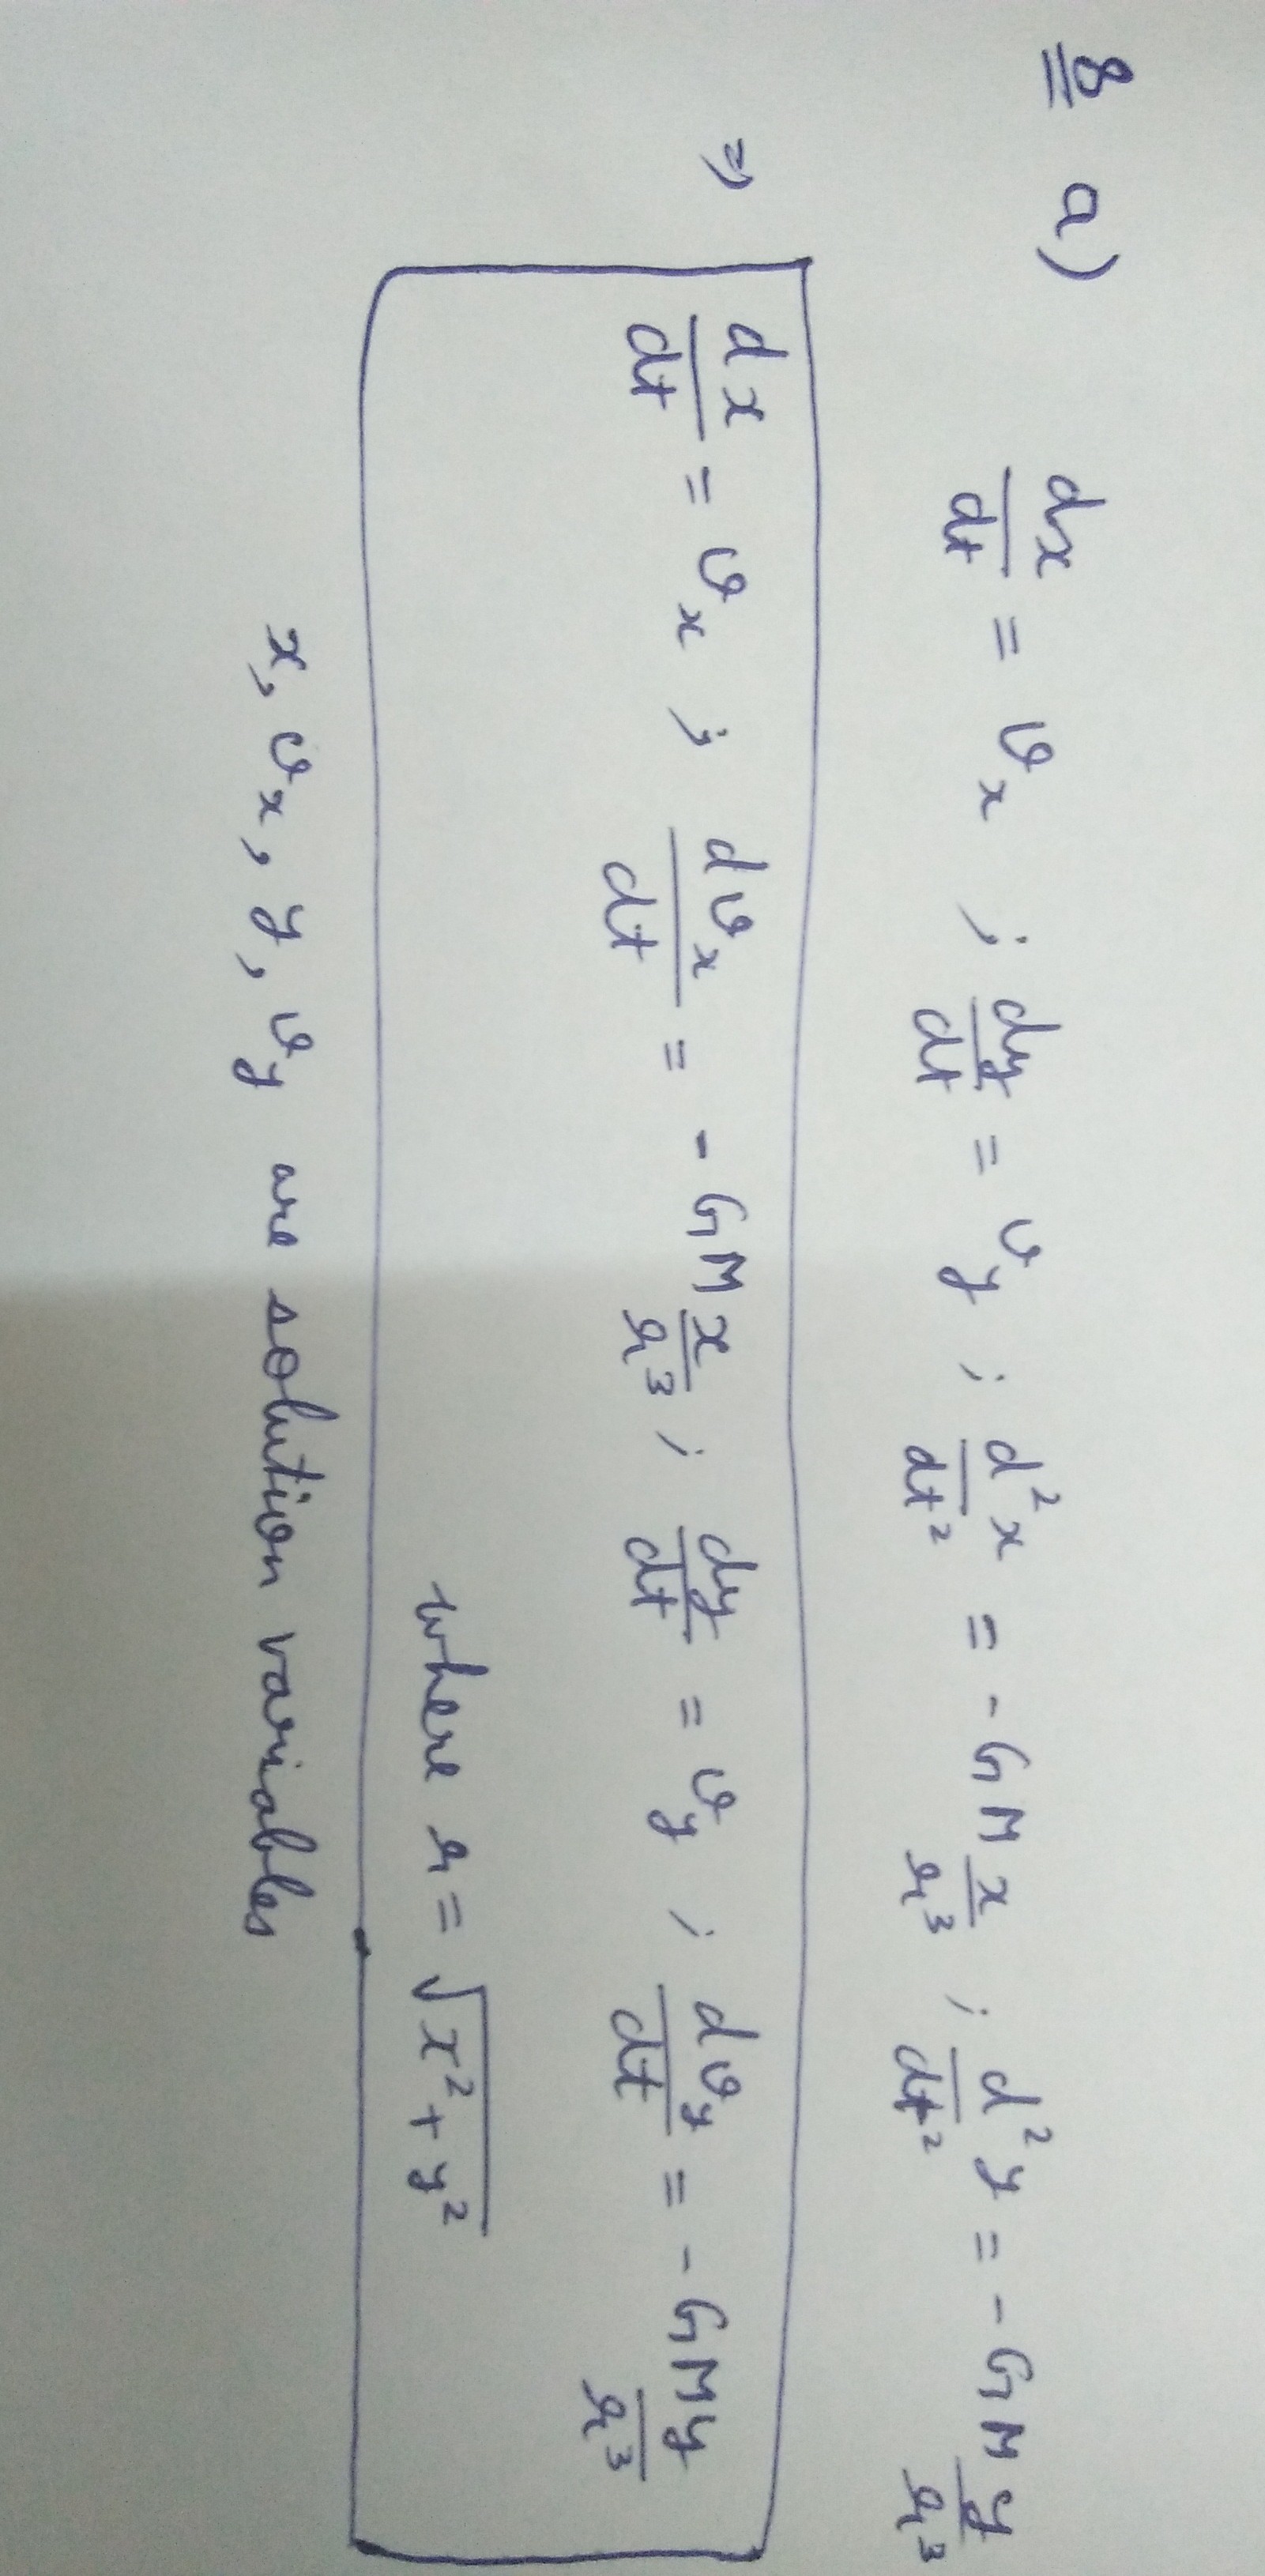 8 a) dx/dt = vₓ ; dy/dt = v_y ; d²x/dt² = -GM x/r³ ; d²y/dt² = -GM y/r³
⇒ dx/dt = vₓ ; dvₓ/dt = -GM x/r³ ; dy/dt = v_y ; dv_y/dt = -GM y/r³
where r = √(x² + y²)
x, vₓ, y, v_y are solution variables